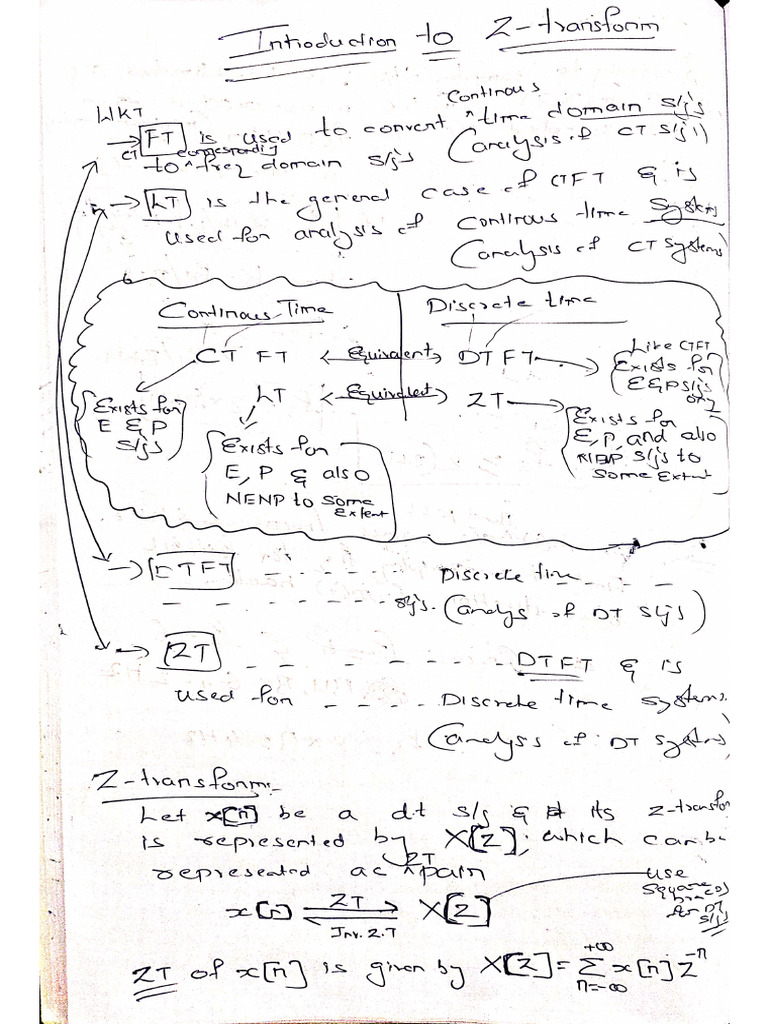 Introduction to Z-transform
WKT
→ FT is used to convert ^ Continous time domain s/g's
to ^ CT corresponding freq domain s/g's (analysis of CT s/g's)
→ LT is the general case of CTFT & is
used for analysis of Continous time Systems
(analysis of CT Systems)
Continous-Time
Discrete time
CT FT ← Equivalent → DTFT → Like CTFT
Exists for
E & P s/g's
only
LT ← Equivalent → ZT
Exists for
E & P
s/g's
Exists for
E, P & also
NENP to some
Extent
Exists for
E, P, and also
NENP s/g's to
some Extent
→ DTFT - - - - - - Discrete time - - -
- - - - - - - - s/g's. (analys of DT s/g's)
→ ZT - - - - - - - DTFT & is
used for - - - - Discrete time systems.
(analysis of DT systems)
Z-transform:-
Let x[n] be a dt s/g & its z-transfor
is represented by X[Z]; which can be
represented as ^ ZT pair
x[n] ZT ⇌ Inv. Z.T X[Z]
use
square
for DT
s/g's
ZT of x[n] is given by X[Z] = Σ x[n] Z^-n
+∞
n=-∞